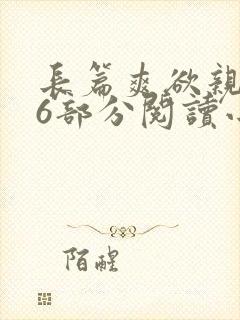 長篇爽欲親
6部分閱讀小
陌醒